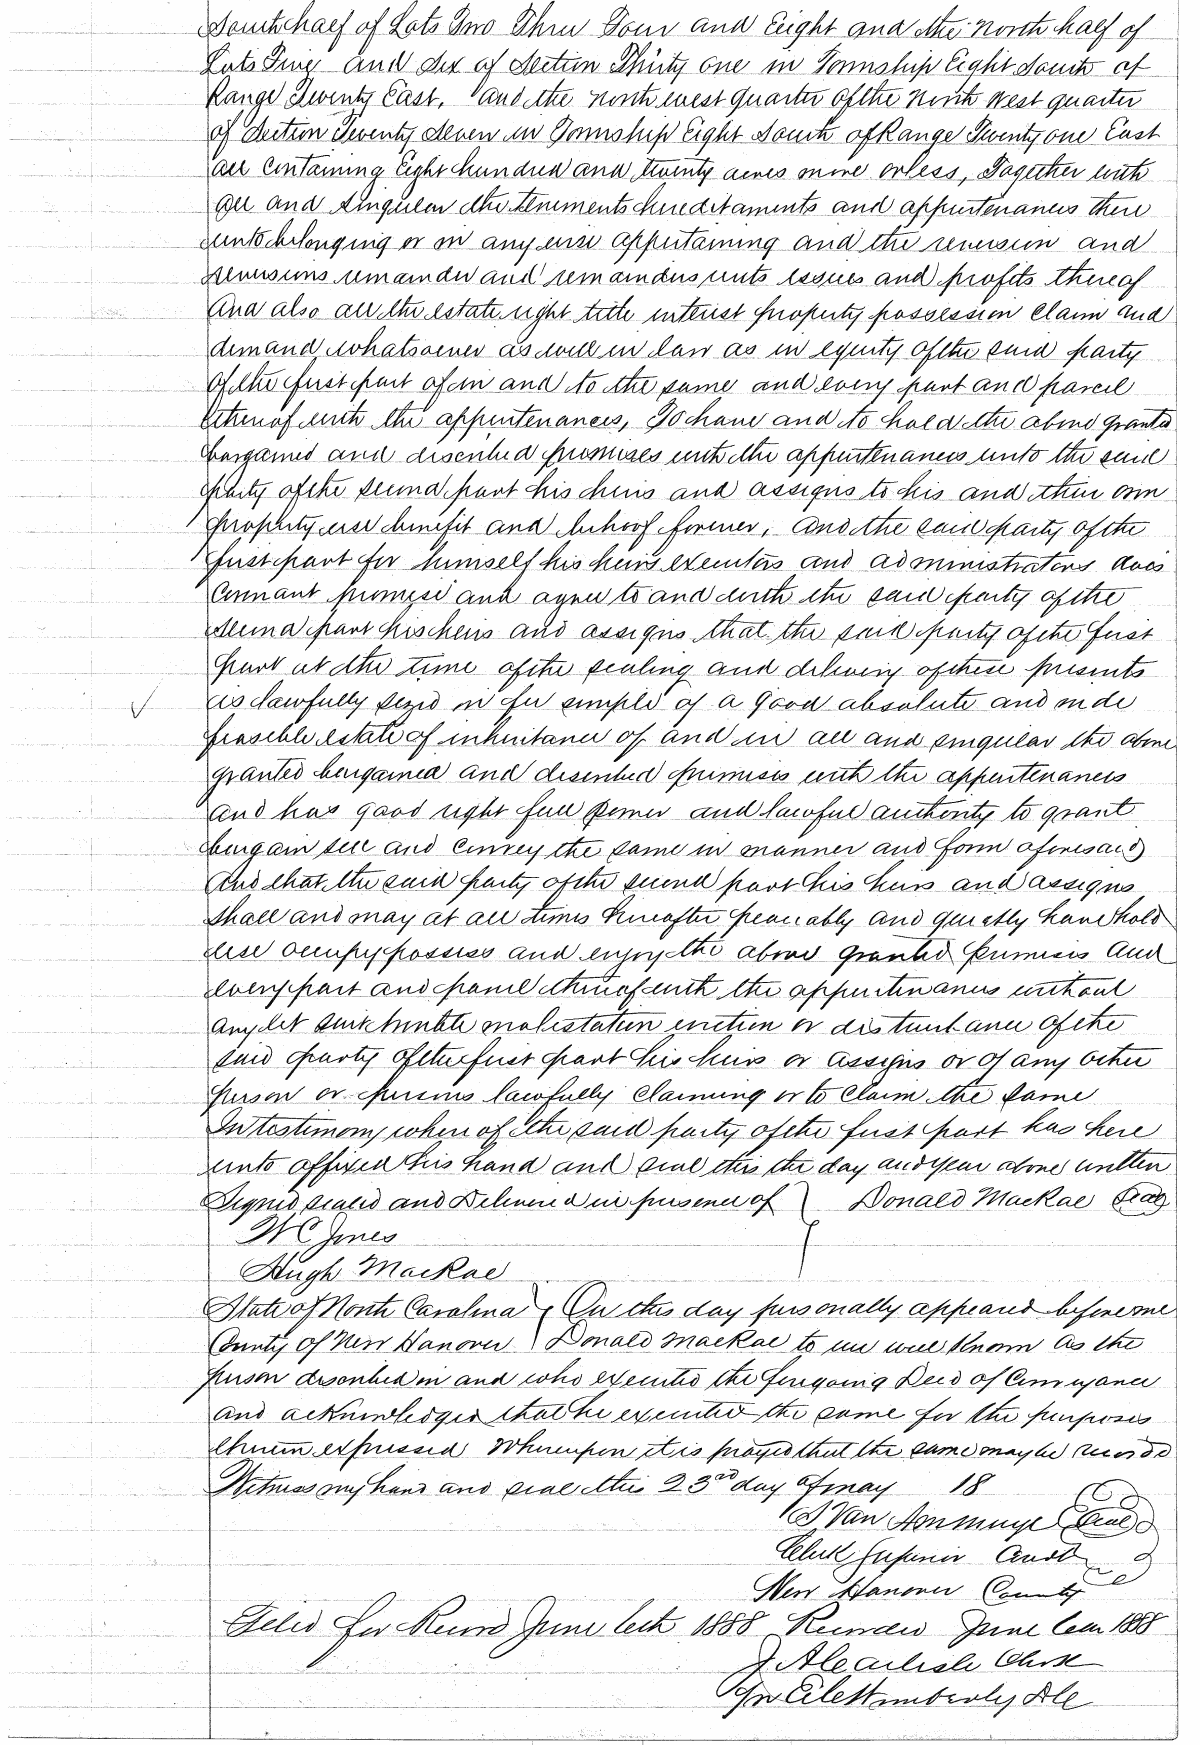 South half of Lots Two Three Four and Eight and the North half of
Lots Five and Six of Section Thirty one in Township Eight South of
Range Twenty East, and the North west quarter of the North West quarter
of Section Twenty Seven in Township Eight South of Range Twenty one East
all containing Eight hundred and twenty acres more or less, Together with
all and singular the tenements hereditaments and appurtenances there
unto belonging or in any wise appertaining and the reversion and
reversions remainder and remainders rents issues and profits thereof
And also all the estate right title interest property possession claim and
demand whatsoever as well in law as in equity of the said party
of the first part of in and to the same and every part and parcel
thereof with the appurtenances, To have and to hold the above granted
bargained and described premises with the appurtenances unto the said
party of the second part his heirs and assigns to his and their own
property use benefit and behoof forever, And the said party of the
first part for himself his heirs executors and administrators does
covenant promise and agree to and with the said party of the
second part his heirs and assigns that the said party of the first
part at the time of the sealing and delivery of these presents
is lawfully seized in fee simple of a good absolute and inde
feasible estate of inheritance of and in all and singular the above
granted bargained and described premises with the appurtenances
and has good right full power and lawful authority to grant
bargain sell and convey the same in manner and form aforesaid
And that the said party of the second part his heirs and assigns
shall and may at all times hereafter peaceably and quietly have hold
use occupy possess and enjoy the above granted premises and
every part and parcel thereof with the appurtenances without
any let suit trouble molestation eviction or disturbance of the
said party of the first part his heirs or assigns or of any other
person or persons lawfully claiming or to claim the same
In testimony whereof the said party of the first part has here
unto affixed his hand and seal this the day and year above written
Signed sealed and Delivered in presence of } Donald MacRae (Seal)
W C Jones
Hugh MacRae
State of North Carolina } On this day personally appeared before me
County of New Hanover } Donald MacRae to me well known as the
person described in and who executed the foregoing Deed of Conveyance
and acknowledged that he executed the same for the purposes
therein expressed Whereupon it is prayed that the same may be recorded
Witness my hand and seal this 23rd day of May 18
S Van Amringe (Seal)
Clerk Superior Court
New Hanover County
Filed for Record June 6th 1888 Recorded June 6th 1888
Clerk